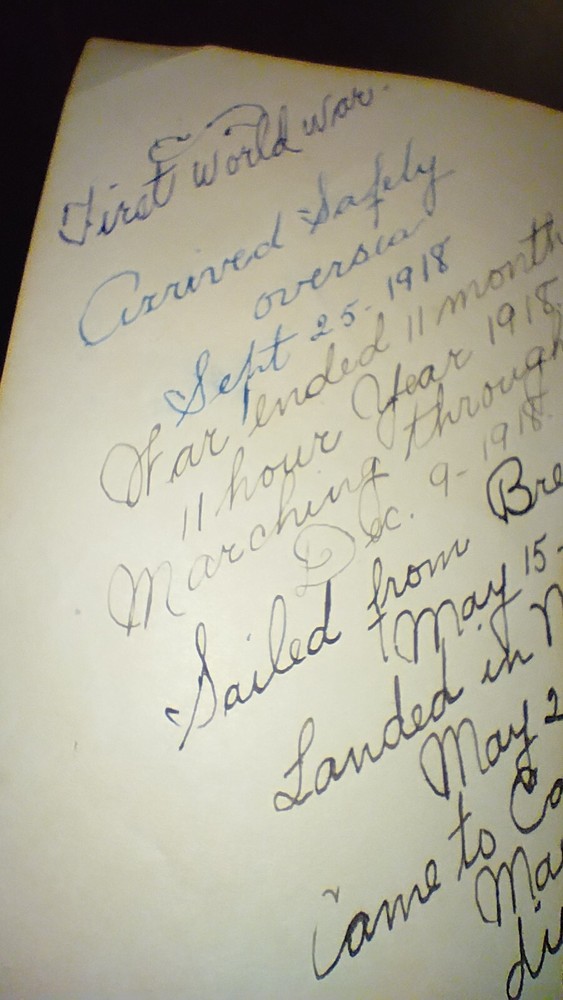 First World War.
Arrived Safely
oversea
Sept 25-1918
War ended 11 month
11 hour Year 1918.
Marching through
Dec. 9-1918.
Sailed from Bre
May 15-
Landed in N
May 2
Came to Ca
Ma
di